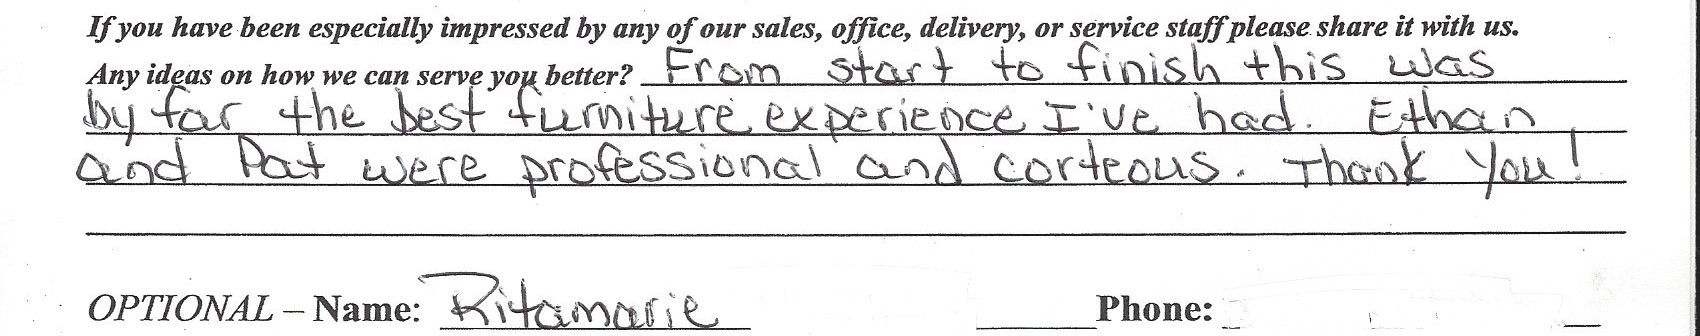 If you have been especially impressed by any of our sales, office, delivery, or service staff please share it with us.
Any ideas on how we can serve you better? From start to finish this was
by far the best furniture experience I've had. Ethan
and Pat were professional and corteous. Thank You!
OPTIONAL – Name: Ritamarie Phone: